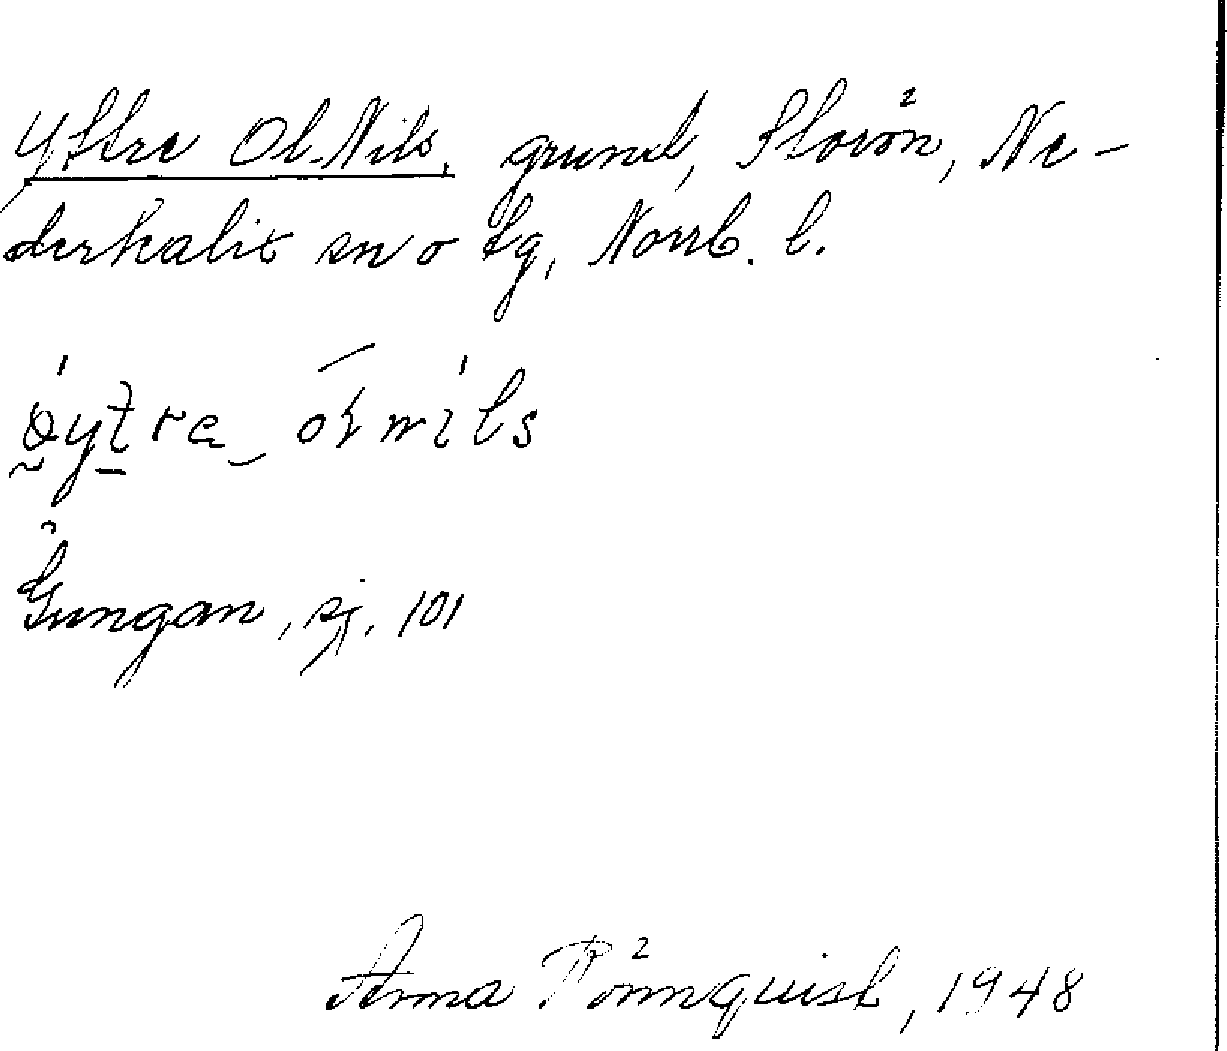 Yttre Ol-Nils, grund, Storön, Ne-
derkalix sn o tg, Norrb. l.
öytra_ olnils
Gungan, sj. 101
Arma Rönnquist, 1948